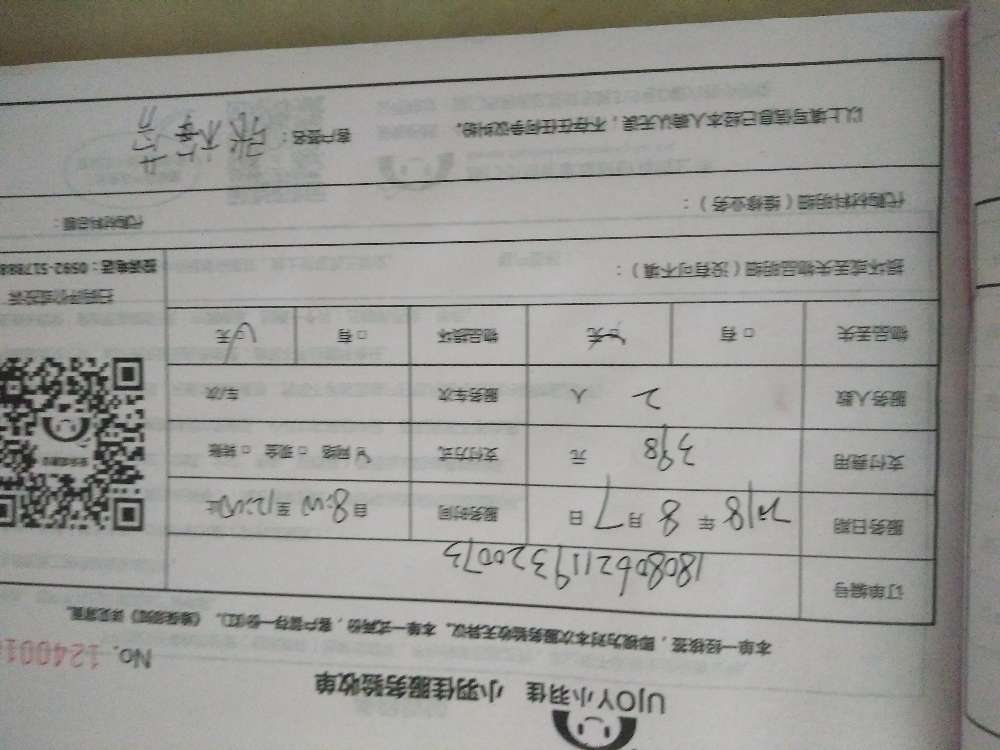 UJOY小羽佳 小羽佳服务验收单
No. 124001
本单一经核签，即视为对本次服务验收无异议。本单一式两份，客户留存一份(页)。
订单编号 1808062119320073
服务日期 2018 年 8 月 7 日 服务时间 自8:00至12:00止
支付费用 398 元 支付方式 ☑网络 □现金 □转账
服务人数 2 人 服务车次 车/次
物品丢失 □有 ☑无 物品损坏 □有 ☑无
扫码评价或投诉
投诉电话：0592-5178888
损坏或丢失物品明细（没有可不填）：
代购材料明细（维修业务）： 代购材料总额：
以上填写信息已经本人确认无误，不存在任何争议纠纷。 客户签名：